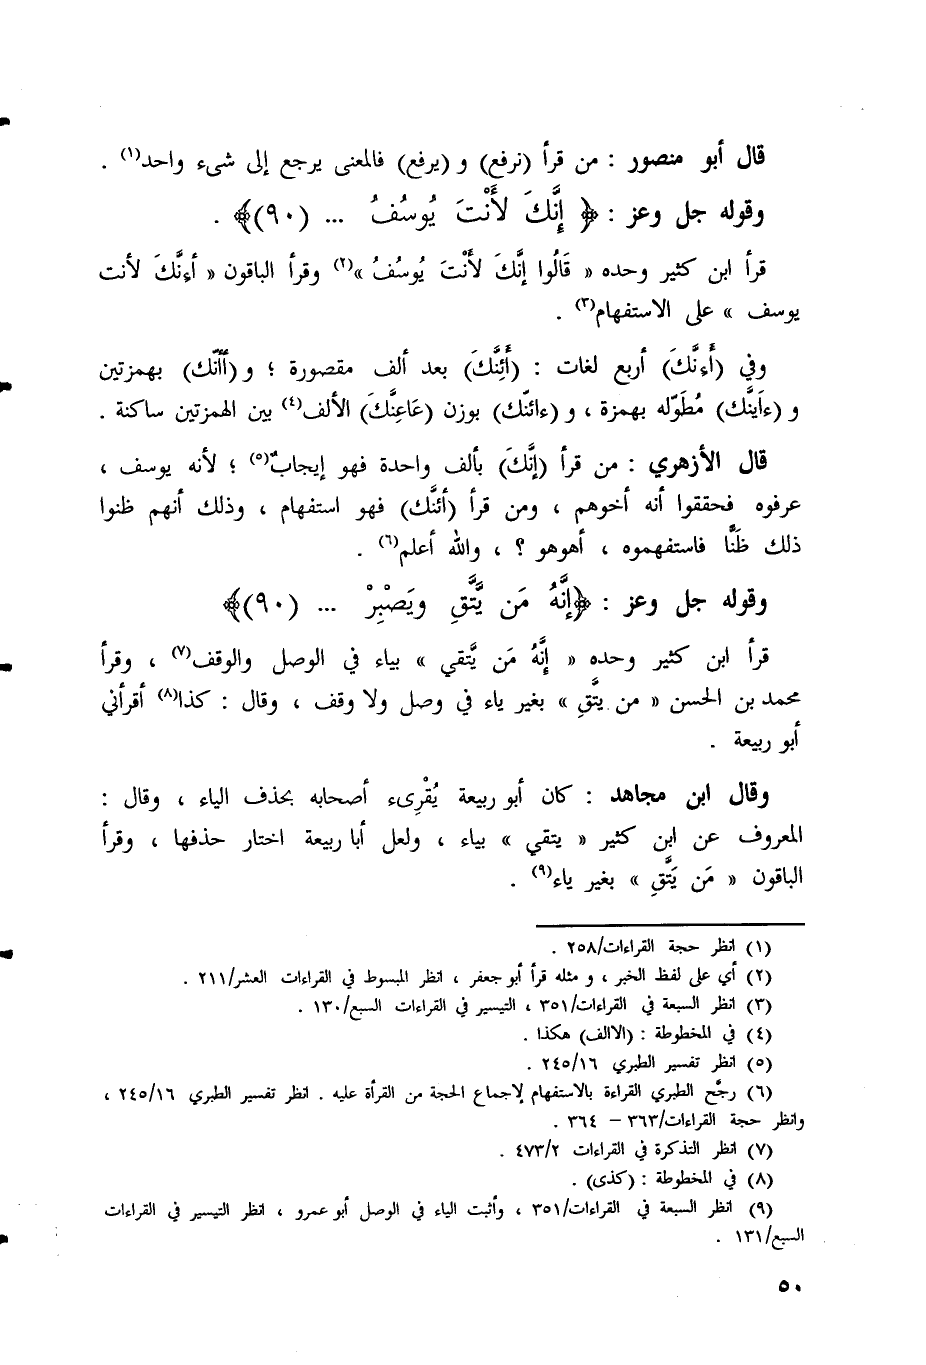 قال أبو منصور : من قرأ (نرفع) و (يرفع) فالمعنى يرجع إلى شيء واحد(١) .
وقوله جل وعز : ﴿ إِنَّكَ لَأَنْتَ يُوسُفُ ... (٩٠)﴾ .
قرأ ابن كثير وحده « قَالُوا إِنَّكَ لَأَنْتَ يُوسُفُ »(٢) وقرأ الباقون « أءنَّكَ لأنت
يوسف » على الاستفهام(٣) .
وفي (أَءِنَّكَ) أربع لغات : (أَئِنَّكَ) بعد ألف مقصورة ؛ و (أَأنّك) بهمزتين
و (ءاَينَّك) مُطَوّله بهمزة ، و (ءائنّك) بوزن (عَاعِنَّكَ) الألف(٤) بين الهمزتين ساكنة .
قال الأزهري : من قرأ (إنَّكَ) بألف واحدة فهو إيجابٌ(٥) ؛ لأنه يوسف ،
عرفوه فحققوا أنه أخوهم ، ومن قرأ (أئنَّك) فهو استفهام ، وذلك أنهم ظنوا
ذلك ظَنًّا فاستفهموه ، أهوهو ؟ ، والله أعلم(٦) .
وقوله جل وعز : ﴿إِنَّهُ مَن يَّتَّقِ ويَصْبِرْ ... (٩٠)﴾
قرأ ابن كثير وحده « إِنَّهُ مَن يَّتقي » بياء في الوصل والوقف(٧) ، وقرأ
محمد بن الحسن « من يتَّقِ » بغير ياء في وصل ولا وقف ، وقال : كذا(٨) أقرأني
أبو ربيعة .
وقال ابن مجاهد : كان أبو ربيعة يُقْرِىء أصحابه بحذف الياء ، وقال :
المعروف عن ابن كثير « يتقي » بياء ، ولعل أبا ربيعة اختار حذفها ، وقرأ
الباقون « مَن يَتَّقِ » بغير ياء(٩) .
(١) انظر حجة القراءات/٢٥٨ .
(٢) أي على لفظ الخبر ، و مثله قرأ أبو جعفر ، انظر المبسوط في القراءات العشر/٢١١ .
(٣) انظر السبعة في القراءات/٣٥١ ، التيسير في القراءات السبع/١٣٠ .
(٤) في المخطوطة : (الاالف) هكذا .
(٥) انظر تفسير الطبري ٢٤٥/١٦ .
(٦) رجَّح الطبري القراءة بالاستفهام لإجماع الحجة من القرأة عليه . انظر تفسير الطبري ٢٤٥/١٦ ،
وانظر حجة القراءات/٣٦٣ – ٣٦٤ .
(٧) انظر التذكرة في القراءات ٤٧٣/٢ .
(٨) في المخطوطة : (كذى) .
(٩) انظر السبعة في القراءات/٣٥١ ، وأثبت الياء في الوصل أبو عمرو ، انظر التيسير في القراءات
السبع/١٣١ .
٥٠